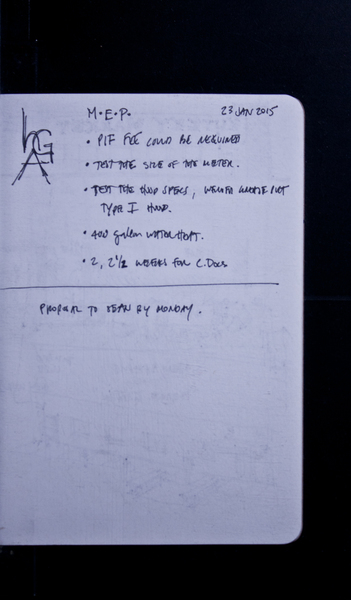 M.E.P. 23 JAN 2015
• PIF FEE COULD BE REQUIRED
• TEST THE SIZE OF THE METER.
• TEST THE HOOD SPECS, NOT
TYPE I HOOD.
• 400 gallon WATER HEAT.
• 2, 2 1/2 WEEKS FOR C.DOCS
PROPOSAL TO SEAN BY MONDAY.